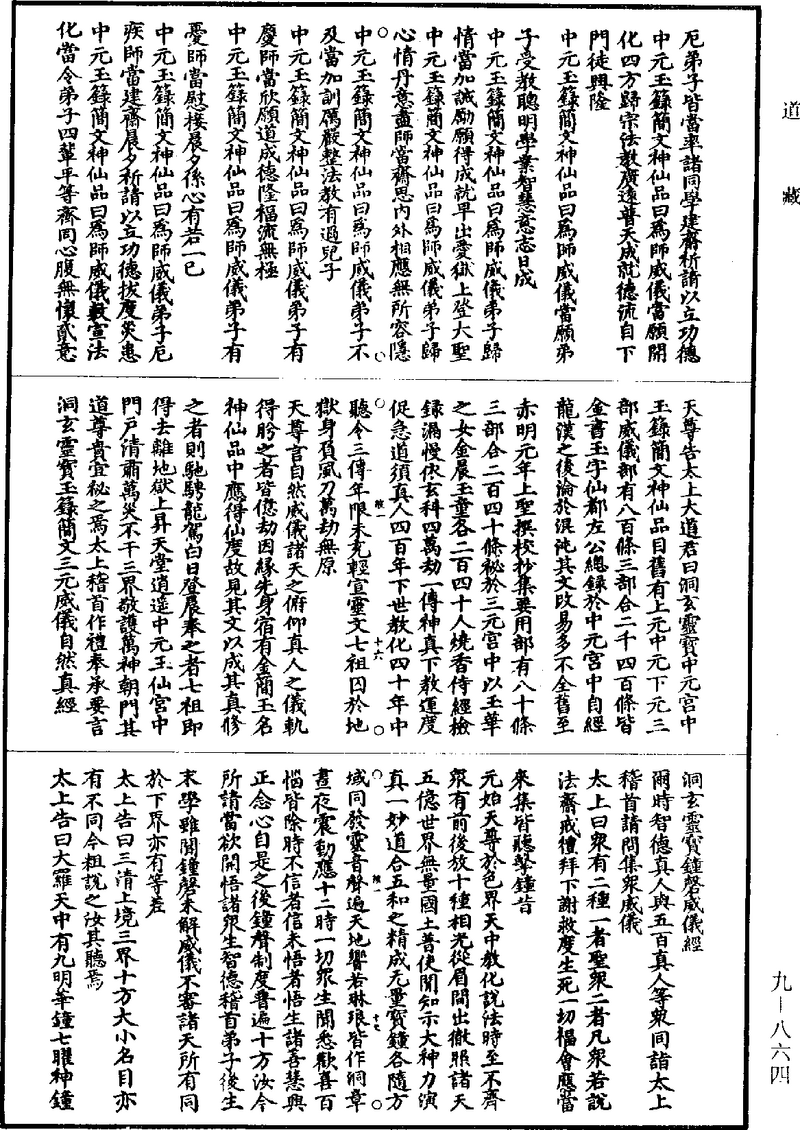 道藏
九—八六四
厄弟子皆當率諸同學建齋祈請以立功德
中元玉籙簡文神仙品曰為師威儀當願開
化四方歸宗法教廣遠普天咸就德流自下
門徒興隆
中元玉籙簡文神仙品曰為師威儀當願弟
子受教聰明學業智慧意志日成
中元玉籙簡文神仙品曰為師威儀弟子歸
情當加誠勵願得成就早出愛獄上登大聖
中元玉籙簡文神仙品曰為師威儀弟子歸
心情丹意盡師當齋思內外相應無所容隱
中元玉籙簡文神仙品曰為師威儀弟子不
及當加訓厲嚴整法教有過兒子
中元玉籙簡文神仙品曰為師威儀弟子有
慶師當欣願道成德隆福流無極
中元玉籙簡文神仙品曰為師威儀弟子有
憂師當慰接晨夕係心有若一己
中元玉籙簡文神仙品曰為師威儀弟子厄
疾師當建齋晨夕祈請以立功德拔度災患
中元玉籙簡文神仙品曰為師威儀敷宣法
化當令弟子四輩平等齋同心腹無懷貳意
天尊告太上大道君曰洞玄靈寶中元宮中
玉籙簡文神仙品目舊有上元中元下元三
部威儀部有八百條三部合二千四百條皆
金書玉字仙都左公總錄於中元宮中自經
龍漢之後淪於混沌其文改易多不全舊至
赤明元年上聖撰校抄集要用部有八十條
三部合二百四十條祕於三元宮中以玉華
之女金晨玉童各二百四十人燒香侍經檢
録漏慢依玄科四萬劫一傳神真下教運度
促急道須真人四百年下世教化四十年中
聽令三傳年限未充輕宣靈文七祖囚於地
獄身負風刀萬劫無原
天尊言自然威儀諸天之俯仰真人之儀軌
得盻之者皆億劫因緣先身宿有金簡玉名
神仙品中應得仙度故見其文以成其真修
之者則馳騁龍駕白日登晨奉之者七祖即
得去離地獄上昇天堂逍遙中元玉仙宮中
門戶清肅萬災不干三界敬護萬神朝門其
道尊貴宜秘之焉太上稽首作禮奉承要言
洞玄靈寶玉籙簡文三元威儀自然真經
十六
洞玄靈寶鐘磬威儀經
爾時智德真人與五百真人等衆同詣太上
稽首請問集衆威儀
太上曰衆有二種一者聖衆二者凡衆若說
法齋戒禮拜下謝救度生死一切福會應當
來集皆聽擊鐘昔
元始天尊於色界天中教化說法時至不齊
衆有前後放十種相光從眉間出徹照諸天
五億世界無量國土普使聞知示大神力演
真一妙道合五和之精成无量寶鐘各隨方
域同發靈音聲遍天地響若琳琅皆作洞章
晝夜震動應十二時一切衆生聞悉歡喜百
惱皆除時不信者信未悟者悟生諸善慧與
正念心自是之後鐘聲制度普遍十方汝今
所請當欲開悟諸衆生智德稽首弟子後生
末學雖聞鐘磬未解威儀不審諸天所有同
於下界亦有等差
太上告曰三清上境三界十方大小名目亦
有不同今粗說之汝其聽焉
太上告曰大羅天中有九明華鐘七曜神鐘
十七